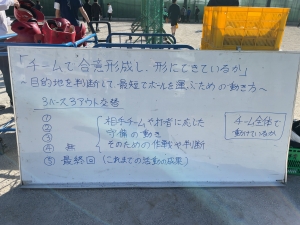 「チームで合意形成し、形にできているか」
～目的地を判断して最短でボールを運ぶための動き方～
3ベース3アウト交替
①
② 相手チームや打者に応じた
③ 守備の動き
④ 無 そのための作戦や判断
⑤ 最終回（これまでの活動の成果）
チーム全体で
動けているか